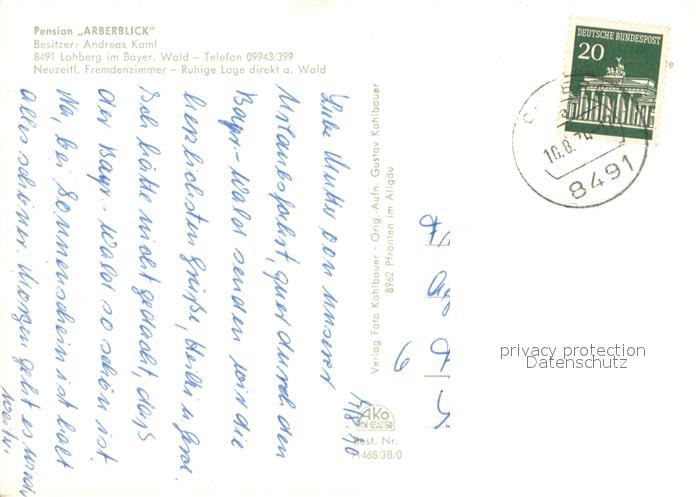 Pension „ARBERBLICK"
Besitzer: Andreas Kaml
8491 Lohberg im Bayer. Wald – Telefon 09943/399
Neuzeitl. Fremdenzimmer – Ruhige Lage direkt a. Wald
Liebe Mutter von unserer
Urlaubsfahrt, quer durch den
Bayr.-Wald senden wir die
herzlichsten Grüße, Heidi u. Gerd.
Ich hätte nicht gedacht, daß
der Bayr.-Wald so schön ist
Na, bei Sonnenschein ist halt
alles schöner. Morgen geht es wieder
weiter.
Verlag Foto Kohlbauer · Orig.-Aufn. Gustav Kohlbauer
8962 Pfronten im Allgäu
AKO
Best. Nr.
11468/38/0
DEUTSCHE BUNDESPOST
20
8491
6
privacy protection
Datenschutz